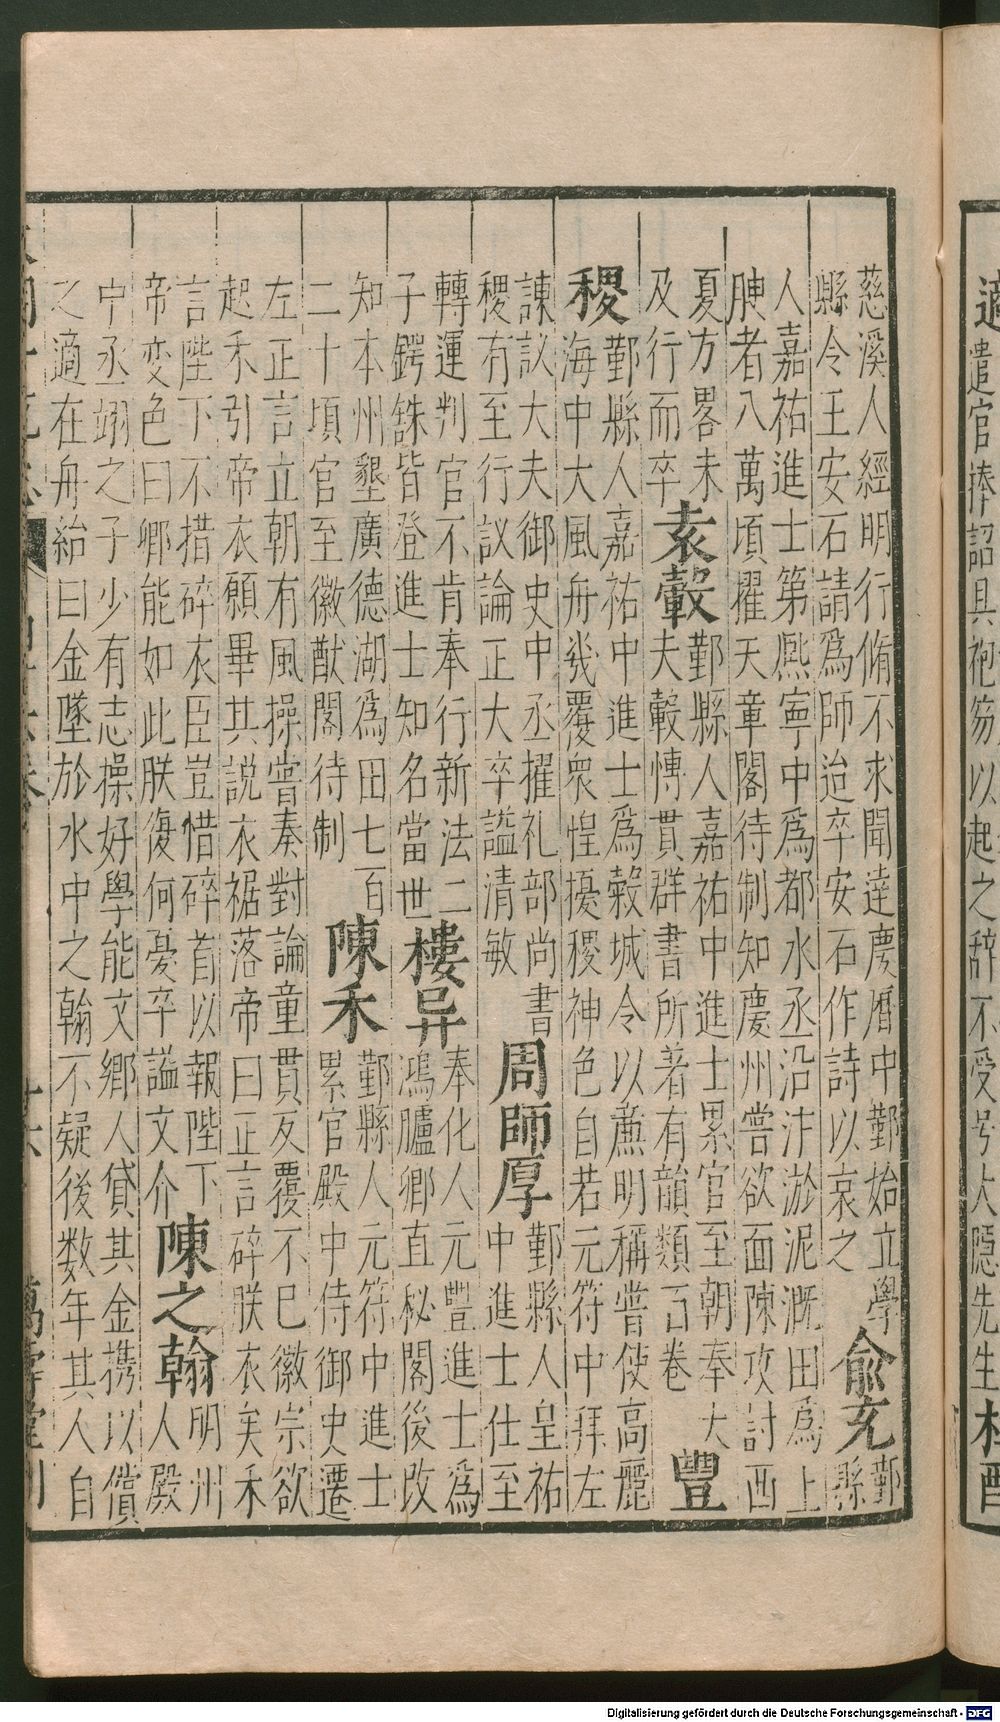 適遣官捧詔具袍笏以起之辞不受号大隠先生杜醇
慈溪人經明行脩不求聞達慶曆中鄞始立學
縣令王安石請為師迨卒安石作詩以哀之
俞充
鄞
縣
人嘉祐進士第熈寧中為都水丞沿汴淤泥溉田為上
腴者八萬頃擢天章閣待制知慶州嘗欲面陳攻討西
夏方畧未
及行而卒
袁轂
鄞縣人嘉祐中進士累官至朝奉大
夫轂愽貫群書所著有韻類百卷
豐
稷
鄞縣人嘉祐中進士為穀城令以亷明稱嘗使高麗
海中大風舟幾覆衆惶擾稷神色自若元符中拜左
諫議大夫御史中丞擢礼部尚書
稷有至行議論正大卒謚清敏
周師厚
鄞縣人皇祐
中進士仕至
轉運判官不肯奉行新法二
子鍔銖皆登進士知名當世
樓异
奉化人元豐進士為
鴻臚卿直秘閣後改
知本州墾廣德湖為田七百
二十頃官至徽猷閣待制
陳禾
鄞縣人元符中進士
累官殿中侍御史遷
左正言立朝有風操甞奏對論童貫反覆不已徽宗欲
起禾引帝衣願畢其説衣裾落帝曰正言碎朕衣矣禾
言陛下不措碎衣臣豈惜碎首以報陛下
帝变色曰卿能如此朕復何憂卒謚文介
陳之翰
明州
人殿
中丞翊之子少有志操好學能文鄉人貸其金携以償
之適在舟紿曰金墜於水中之翰不疑後数年其人自
Digitalisierung gefördert durch die Deutsche Forschungsgemeinschaft - DFG